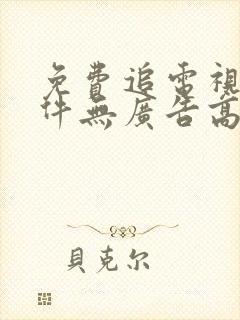 免費追電視
件無廣告高
貝克尔